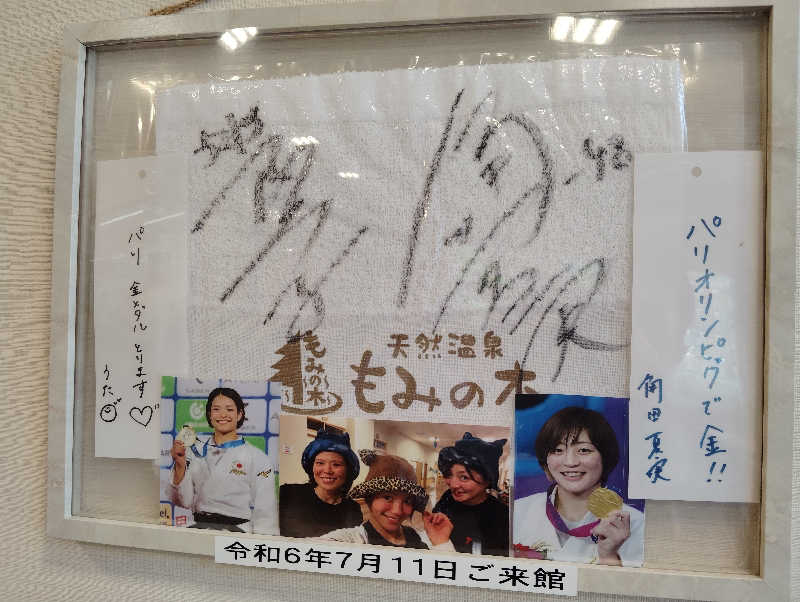 パリ 金メダル とります♡
うた
パリオリンピックで金!!
角田夏実
-48
もみの木
天然温泉
もみの木
令和6年7月11日ご来館